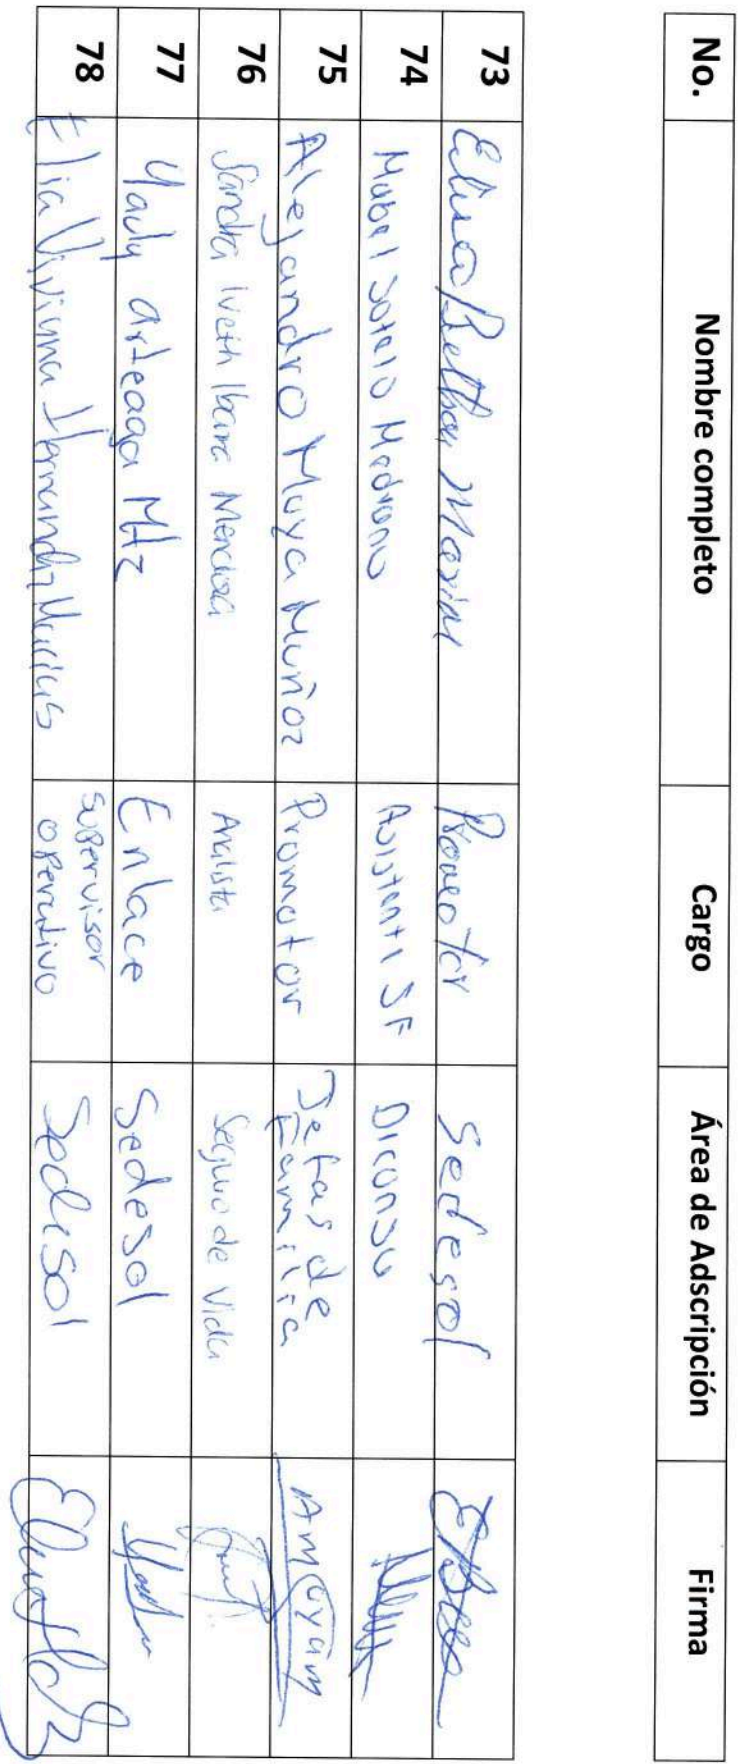 No. Nombre completo Cargo Área de Adscripción Firma
73 Elisa Beltran Marin Promotor Sedesol
74 Mabel Sotelo Medrano Asistente SF Diconsa
75 Alejandro Moya Muñoz Promotor Jefas de
Familia AMoyam
76 Sandra Iveth Ibarra Mendoza Analista Seguro de Vida
77 Yady arteaga Mtz Enlace Sedesol
78 Elia Viviana Hernandez Macias Supervisor
operativo Sedesol